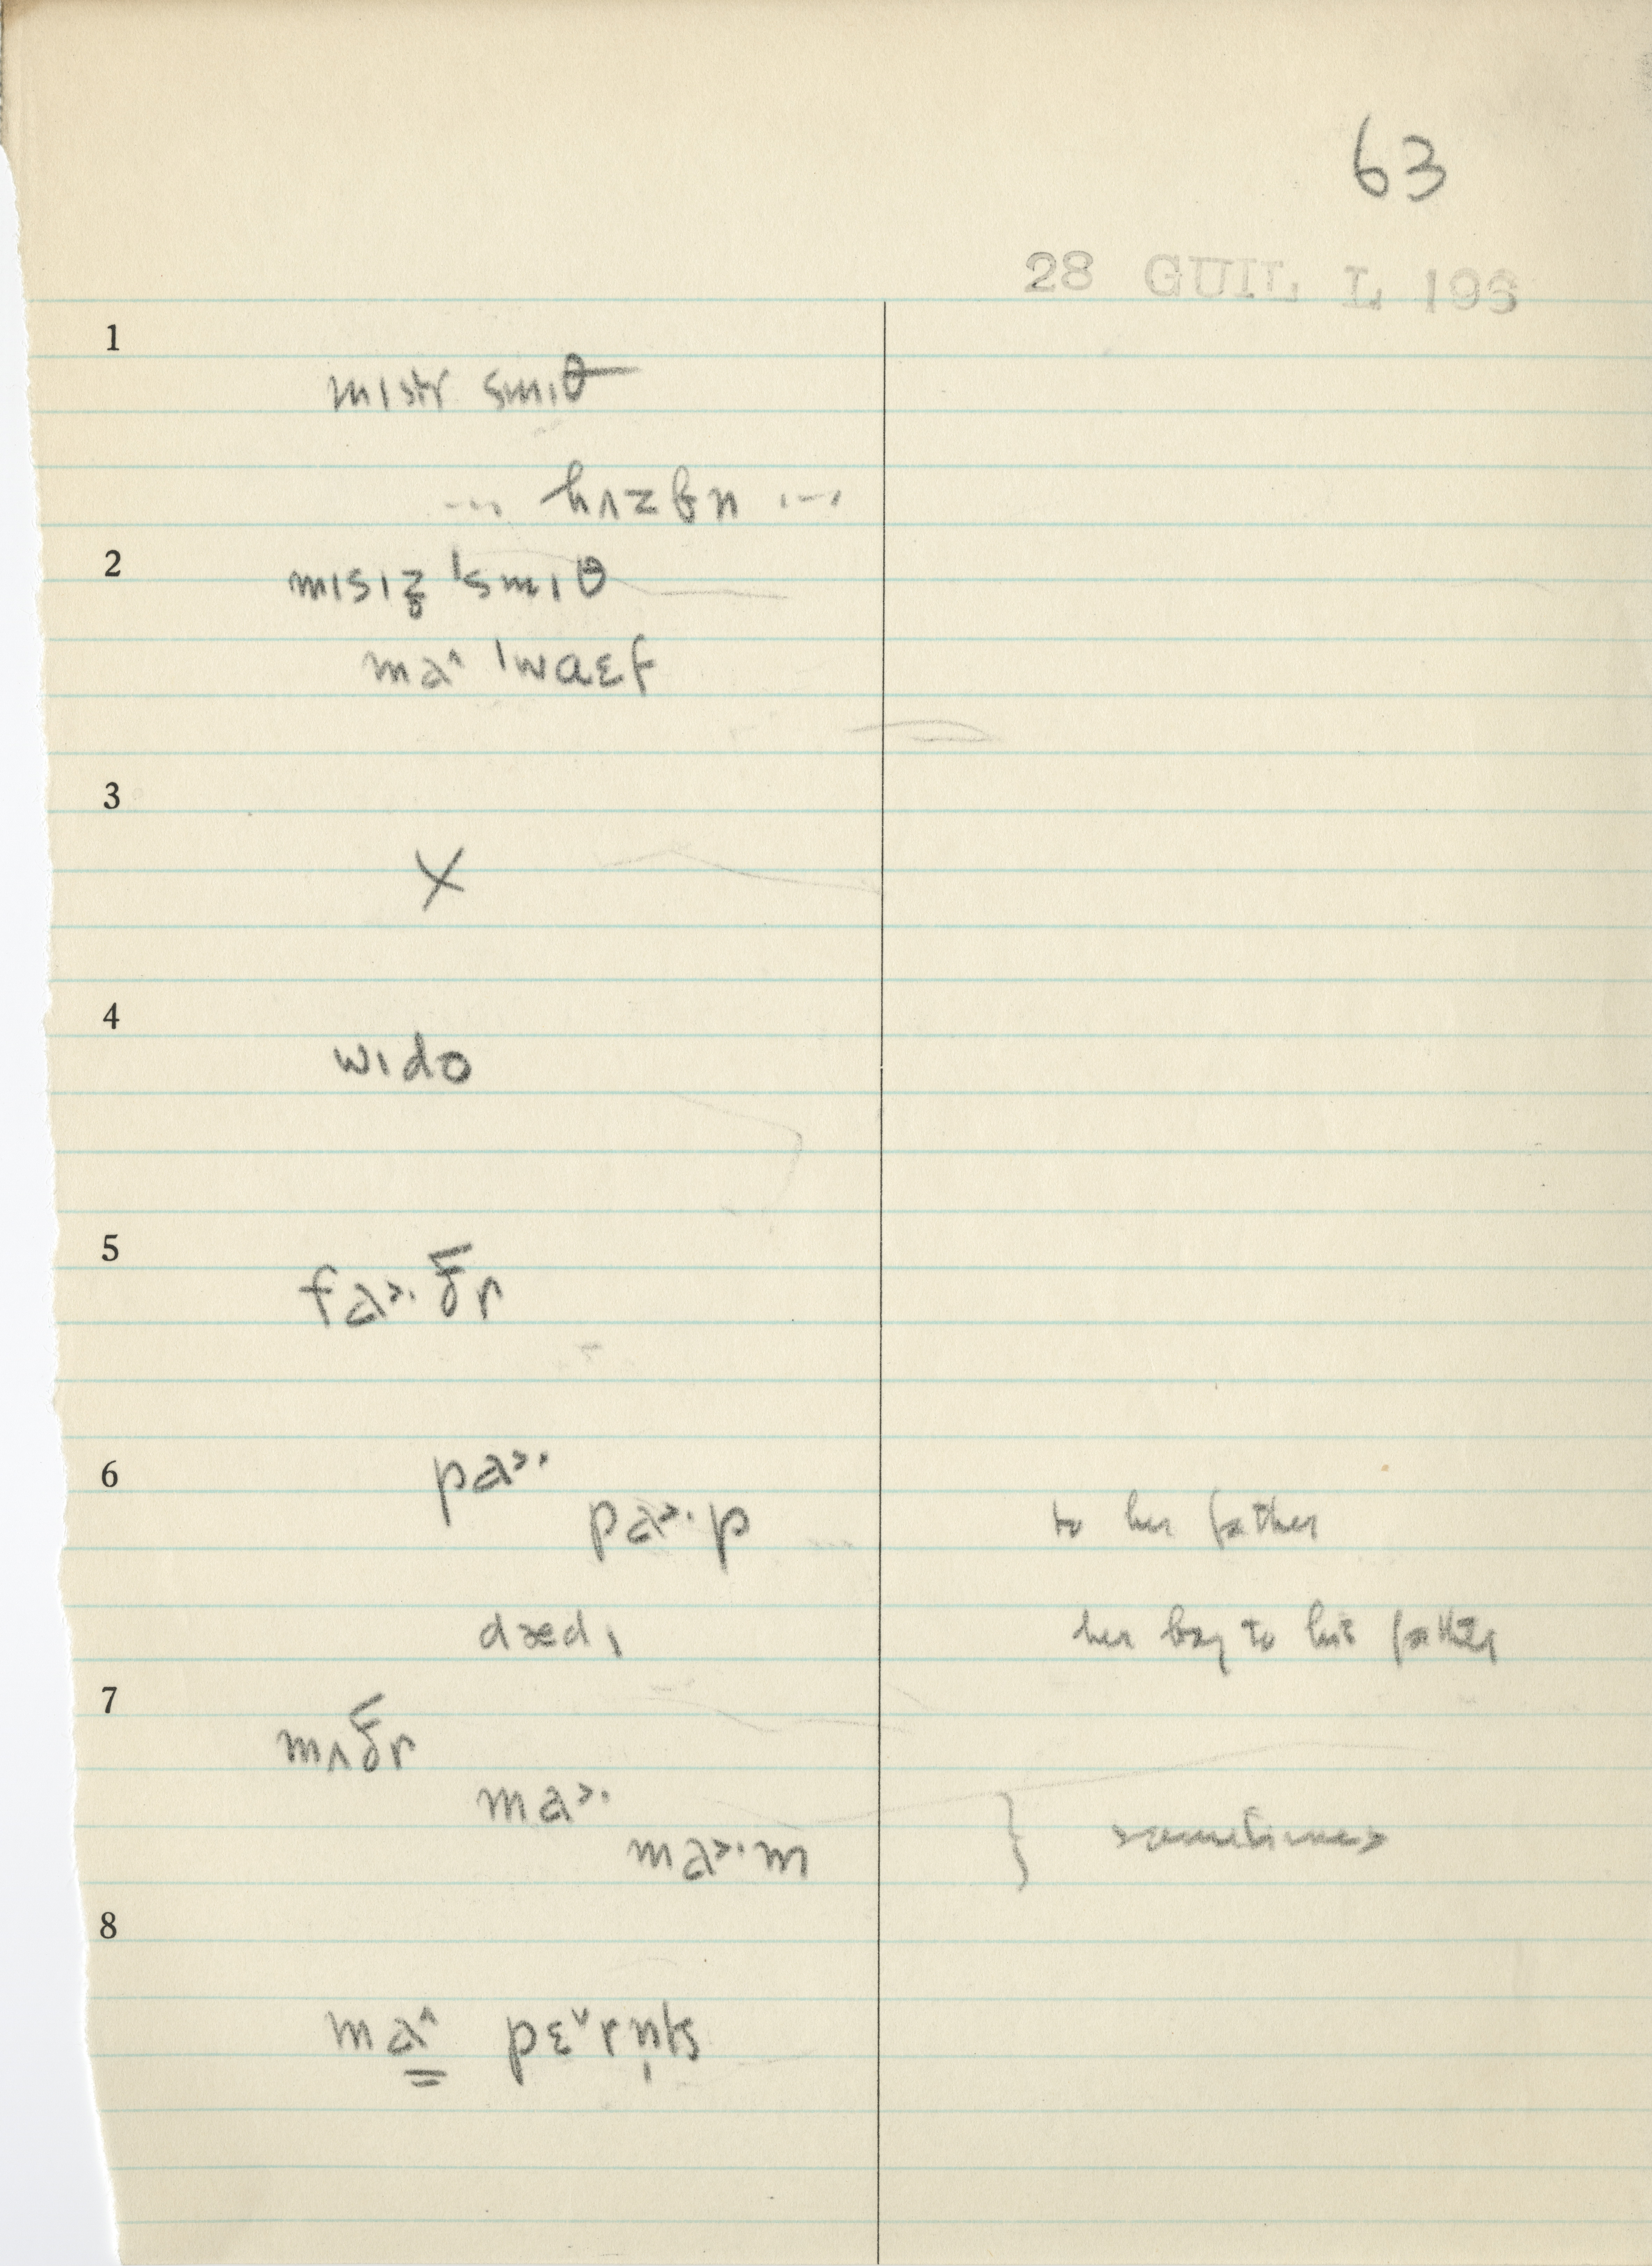 63
28 GUIL L 196
1
mɪstr smɪθ
... hʌzbn ...
2
mɪsɪz̥ ˈsmɪθ
ma˄ ˈwaɛf
3
X
4
wɪdo
5
fa˃·ðr
6
pa˃·
pa˃·p to her father
dædɪ her boy to his father
7
mʌðr
ma˃·
ma˃·m } sometimes
8
ma˄ pɛ˅rn̩ts